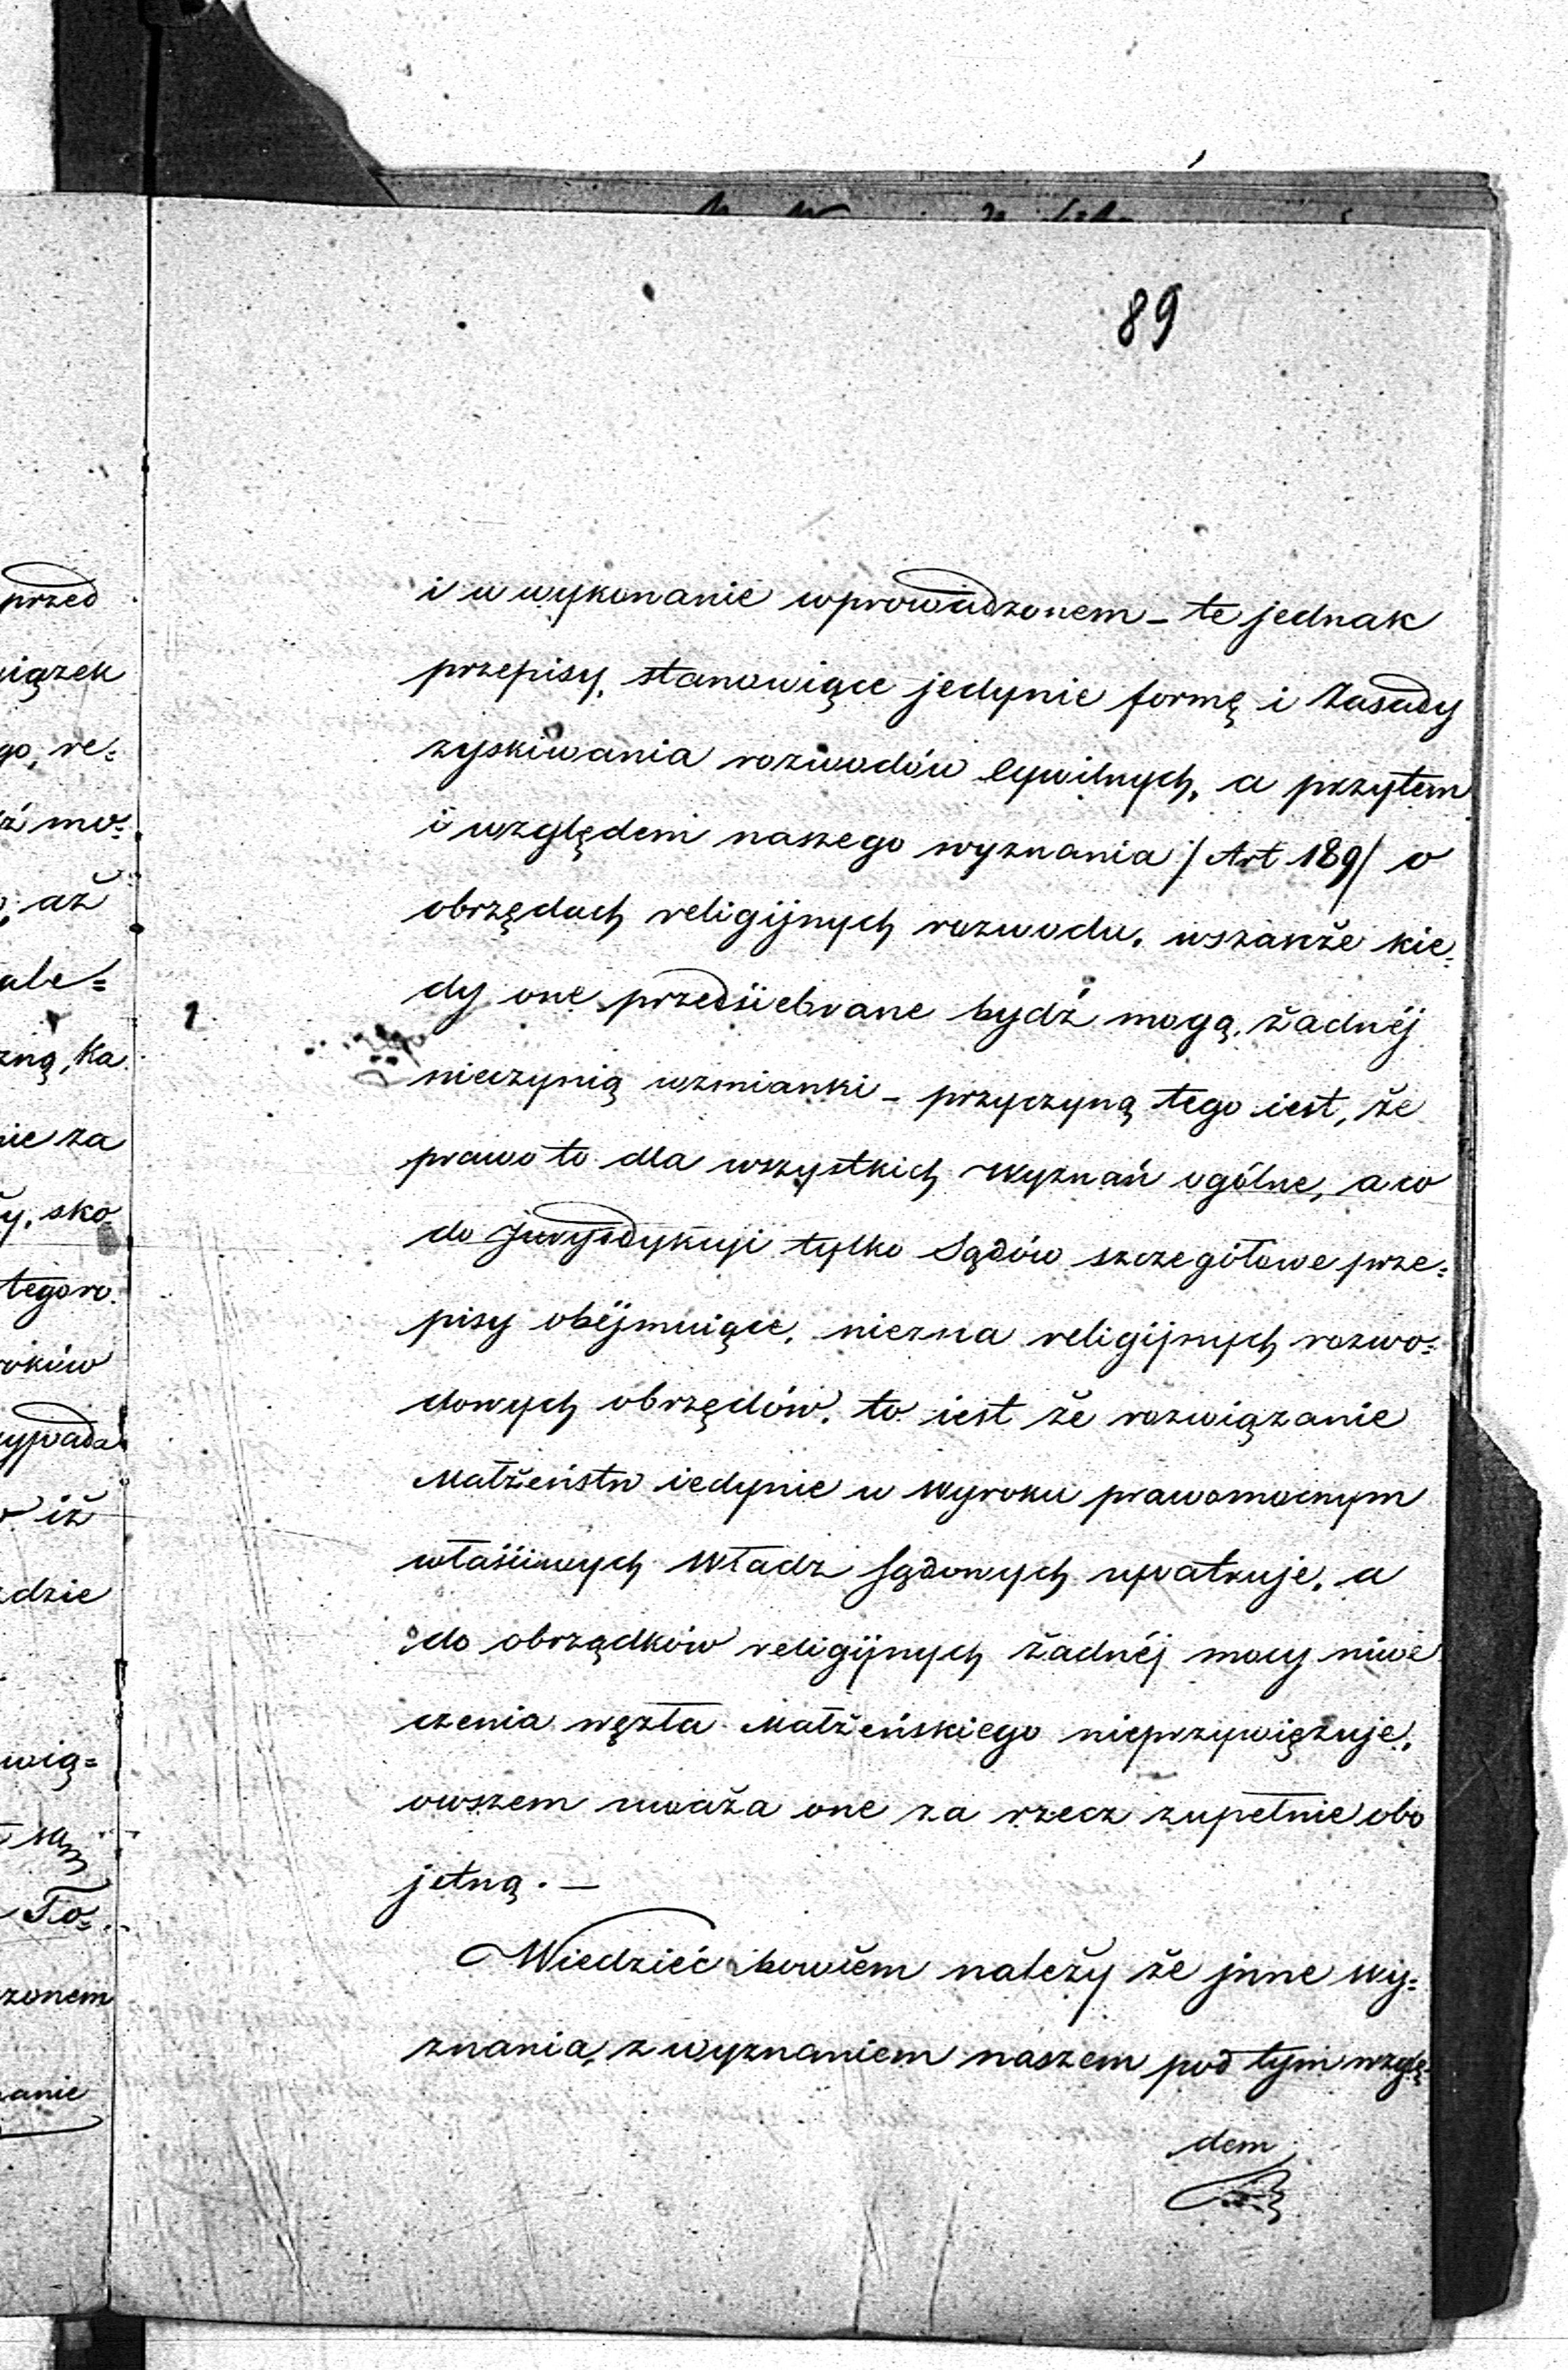 89
i w wykonanie wprowadzonem – te jednak
przepisy, stanowiące jedynie formę i Zasady
zyskiwania rozwodów Cywilnych, a przytem
i względem naszego wyznania /Art 189/ o
obrzędach religijnych rozwodu, wszakże kie=
dy one przedsiebrane bydź mogą, żadnéj
nieczynią wzmianki – przyczyną tego iest, że
prawo to dla wszystkich Wyznań ogólne, a co
do Jurysdykcyi tylko Sądów szczegółowe prze=
pisy obéjmuiące, niezna religijnych rozwo=
dowych obrzędów, to iest że rozwiązanie
Małżeństw iedynie w Wyroku prawomocnym
właściwych Władz Sądowych upatruje, a
do obrządków religijnych żadnéj mocy niwe
czenia węzła Małżeńskiego nieprzywięzuje,
owszem uważa one za rzecz zupełnie obo
jetną. –
Wiedzieć bowiem należy że jnne wy=
znania, z wyznaniem naszem pod tym wzglę=
dem
przed
iązek
go, re=
ź mo=
aż
ale=
zną, Ka
nie za
y, sko
tegoro
roków
wypada
iż
dzie
wią=
To=
zonem
anie